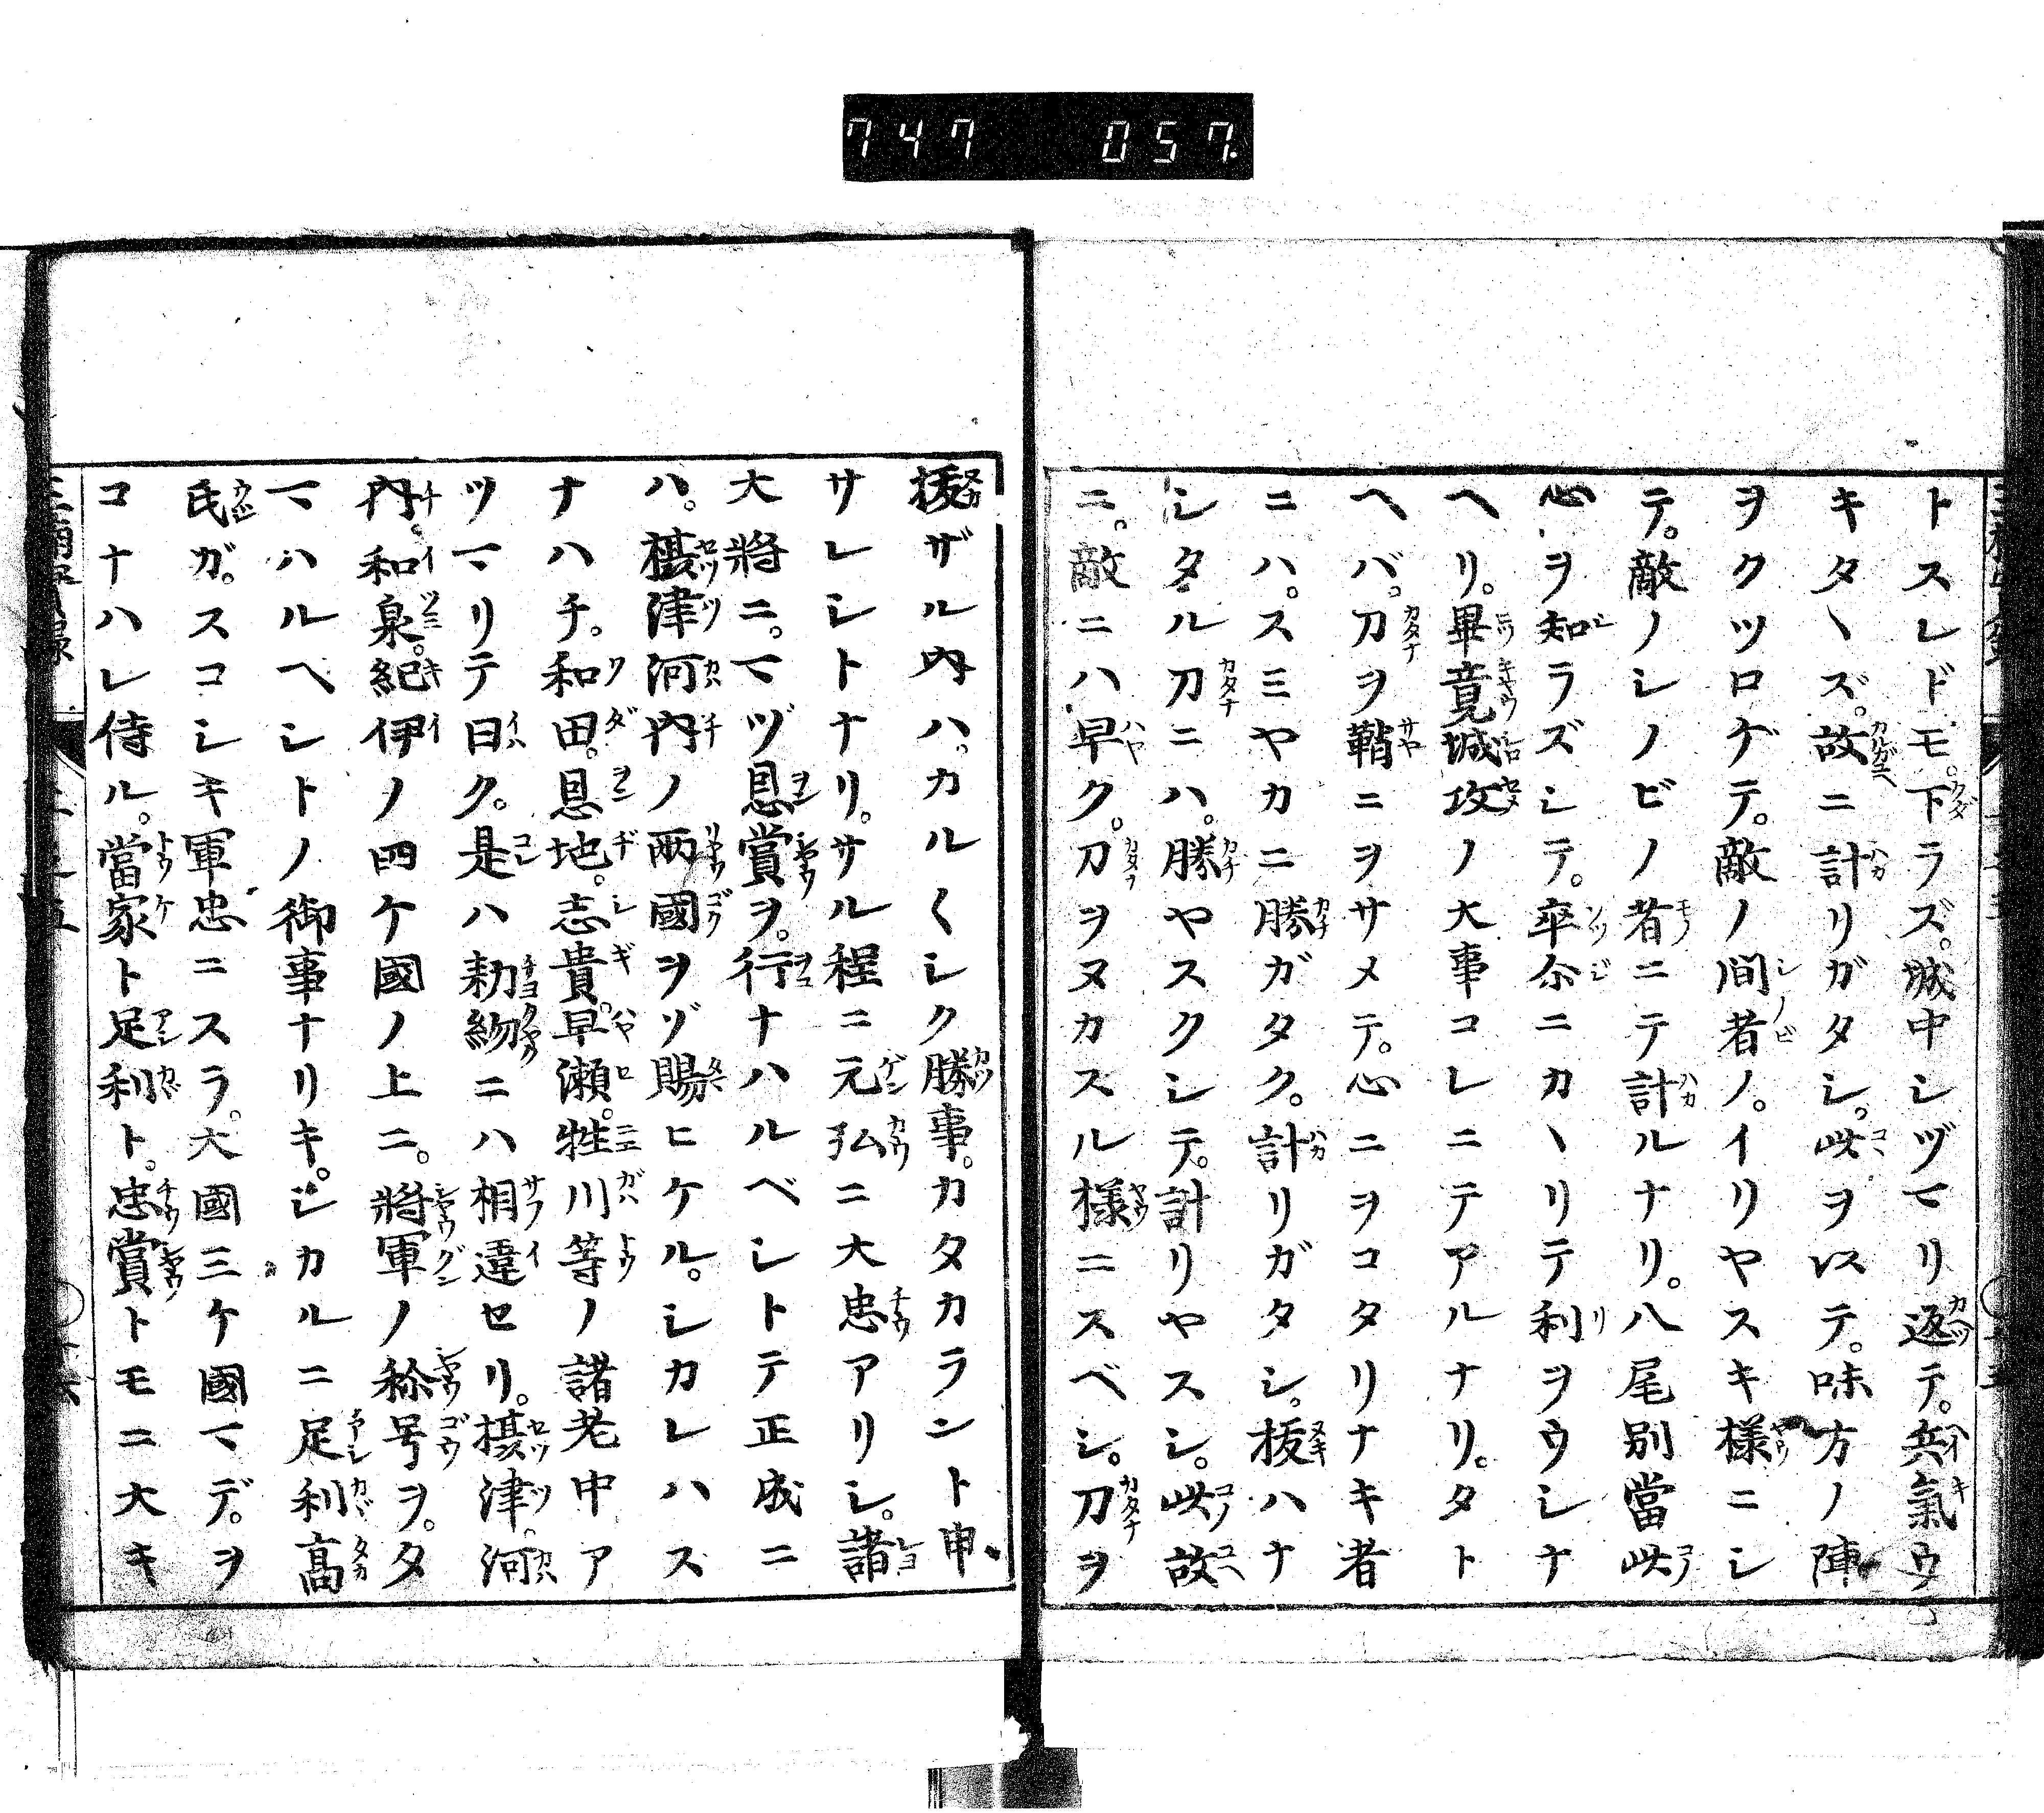 747 057.
トスレドモ。下ラズ。城中シヅマリ返テ。兵氣ウ
キタヽズ。故ニ計リガタシ。此ヲ以テ。味方ノ陣
ヲクツロゲテ。敵ノ間者ノ。イリヤスキ様ニシ
テ。敵ノシノビノ者ニテ計ルナリ。八尾別當此
心ヲ知ラズシテ。卒尓ニカヽリテ利ヲウシナ
ヘリ。畢竟城攻ノ大事コレニテアルナリ。タト
ヘバ。刀ヲ鞘ニヲサメテ。心ニヲコタリナキ者
ニハ。スミヤカニ勝ガタク。計リガタシ。抜ハナ
シタル刀ニハ。勝ヤスクシテ。計リヤスシ。此故
ニ。敵ニハ早ク。刀ヲヌカスル様ニスベシ。刀ヲ
抜ザル内ハ。カルくシク勝事。カタカラント申
サレシトナリ。サル程ニ元弘ニ大忠アリシ。諸
大將ニ。マヅ恩賞ヲ。行ナハルベシトテ正成ニ
ハ。攝津河内ノ兩國ヲゾ賜ヒケル。シカレハス
ナハチ。和田。恩地。志貴。早瀬。牲川等ノ諸老中ア
ツマリテ曰ク。是ハ勅約ニハ相違セリ。攝津。河
内。和泉。紀伊ノ四ケ國ノ上ニ。將軍ノ称号ヲ。タ
マハルヘシトノ御事ナリキ。シカルニ足利高
氏ガ。スコシキ軍忠ニスラ。大國三ケ國マデ。ヲ
コナハレ侍ル。當家ト足利ト。忠賞トモニ大キ